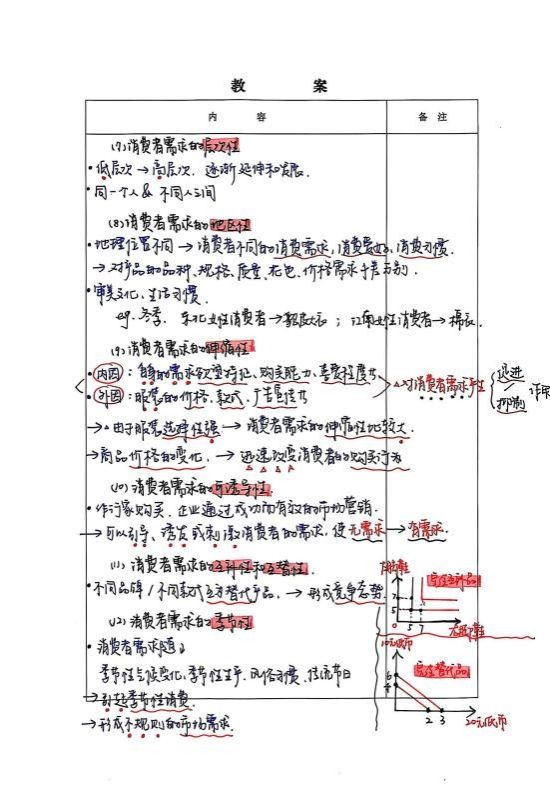 教 案
内 容
备 注
(7)消费者需求的层次性
·低层次→高层次,逐渐延伸和发展.
·同一个人&不同人之间
(8)消费者需求的地区性
·地理位置不同→消费者不同的消费需求,消费爱好,消费习惯.
→对产品的品种、规格、质量、花色、价格需求千差万别.
·审美文化、生活习惯.
eg.冬季, 东北女性消费者→貂皮大衣; 江南女性消费者→棉衣.
(9)消费者需求的伸缩性
·内因:自身的需求欲望特征、购买能力、喜爱程度……
·外因:服装的价格、款式、广告宣传……
→对消费者需求产生
促进
抑制
作用
→△由于服装选择性强→消费者需求的伸缩性比较大.
→商品价格的变化,→迅速改变消费者的购买行为
(10)消费者需求的可诱导性.
·作行家购买,企业通过成功而有效的市场营销.
→可以引导、诱发或刺激消费者的需求,使无需求→有需求.
(11)消费者需求的互补性和互替性.
·不同品牌/不同款式互为替代产品,→形成竞争态势.
(12)消费者需求的季节性
·消费者需求随
季节性气候变化、季节性生产、风俗习惯、传统节日
→引起季节性消费.
→形成不规则的市场需求.
完全互补品
7
5
0
5
7
10元纸币
完全替代品
6
4
2
3
20元纸币